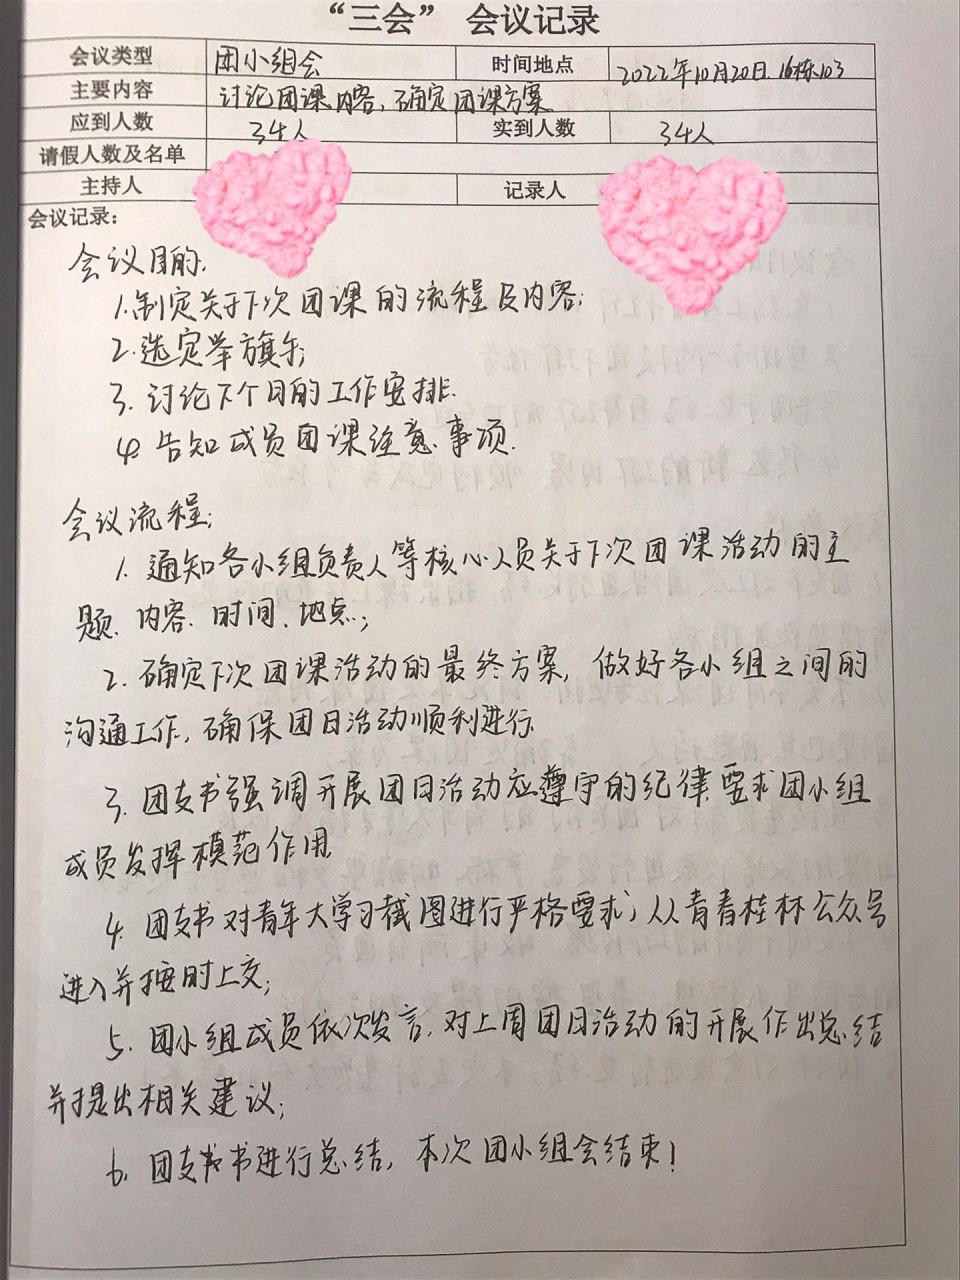 “三会” 会议记录
会议类型 团小组会 时间地点 2022年10月20日 16栋103
主要内容 讨论团课内容，确定团课方案
应到人数 34人 实到人数 34人
请假人数及名单
主持人 记录人
会议记录：
会议目的：
1.制定关于下次团课的流程及内容；
2.选定举旗手；
3.讨论下个月的工作安排.
4.告知成员团课注意事项.
会议流程；
1.通知各小组负责人等核心人员关于下次团课活动的主
题、内容、时间、地点；
2.确定下次团课活动的最终方案，做好各小组之间的
沟通工作，确保团日活动顺利进行.
3.团支书强调开展团日活动应遵守的纪律，要求团小组
成员发挥模范作用.
4.团支书对青年大学习截图进行严格要求；从青青桂林公众号
进入并按时上交；
5.团小组成员依次发言，对上周团日活动的开展作出总结
并提出相关建议；
6.团支书进行总结，本次团小组会结束！